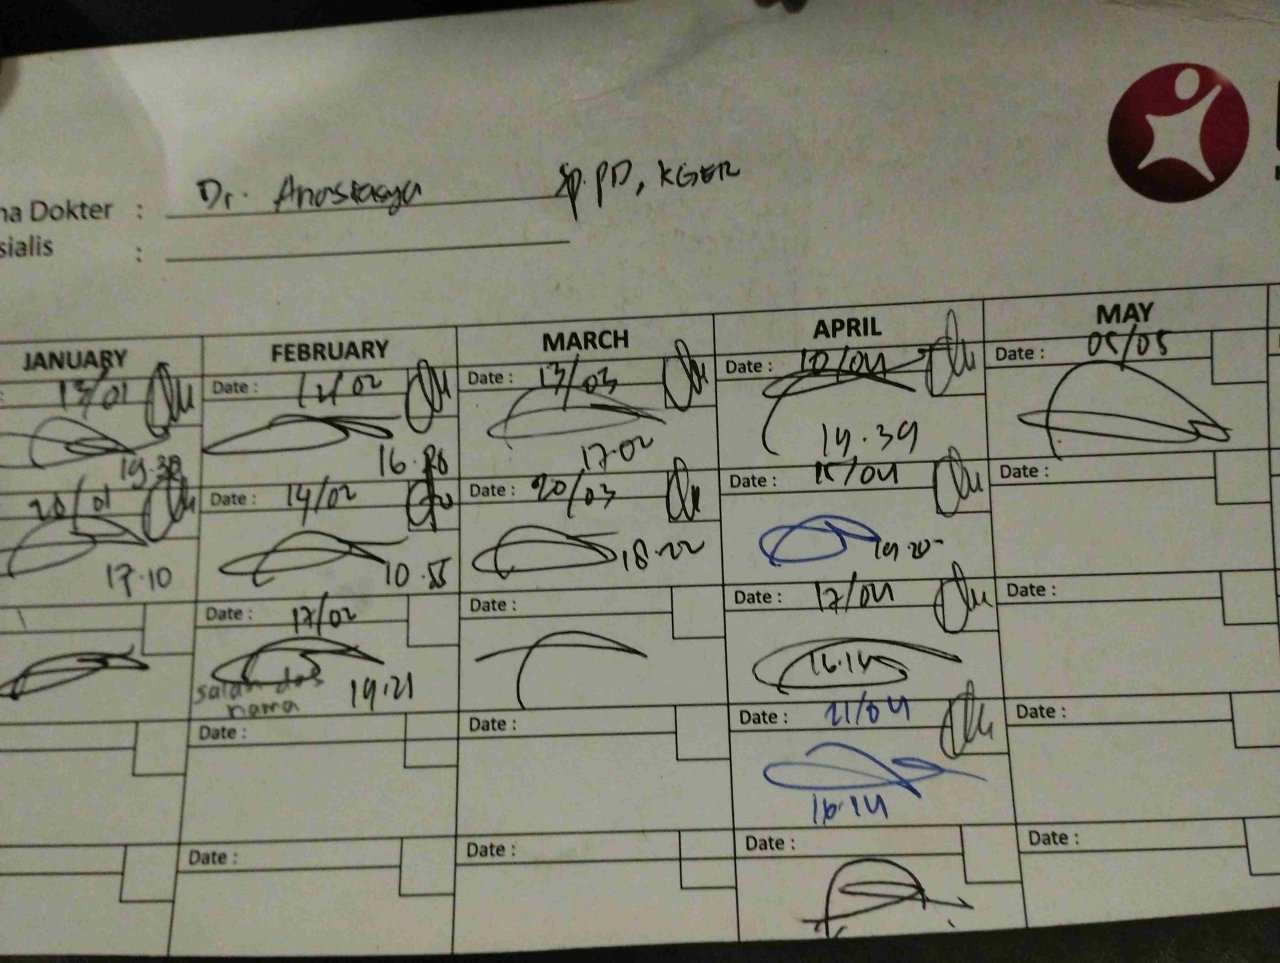 na Dokter : Dr. Anastasya Sp.PD, KGER
sialis :
JANUARY FEBRUARY MARCH APRIL MAY
13/01 Date : 12/02 Date : 13/03 Date : 10/04 Date : 05/05
19.38 16. 17.02 19.39
20/01 Date : 14/02 Date : 20/03 Date : 15/04 Date :
17.10 10.55 18.22 19.20
Date : 17/02 Date : Date : 17/04 Date :
salah dos
nama 19.21 16.14
Date : Date : Date : 21/04 Date :
16.14
Date : Date : Date : Date :